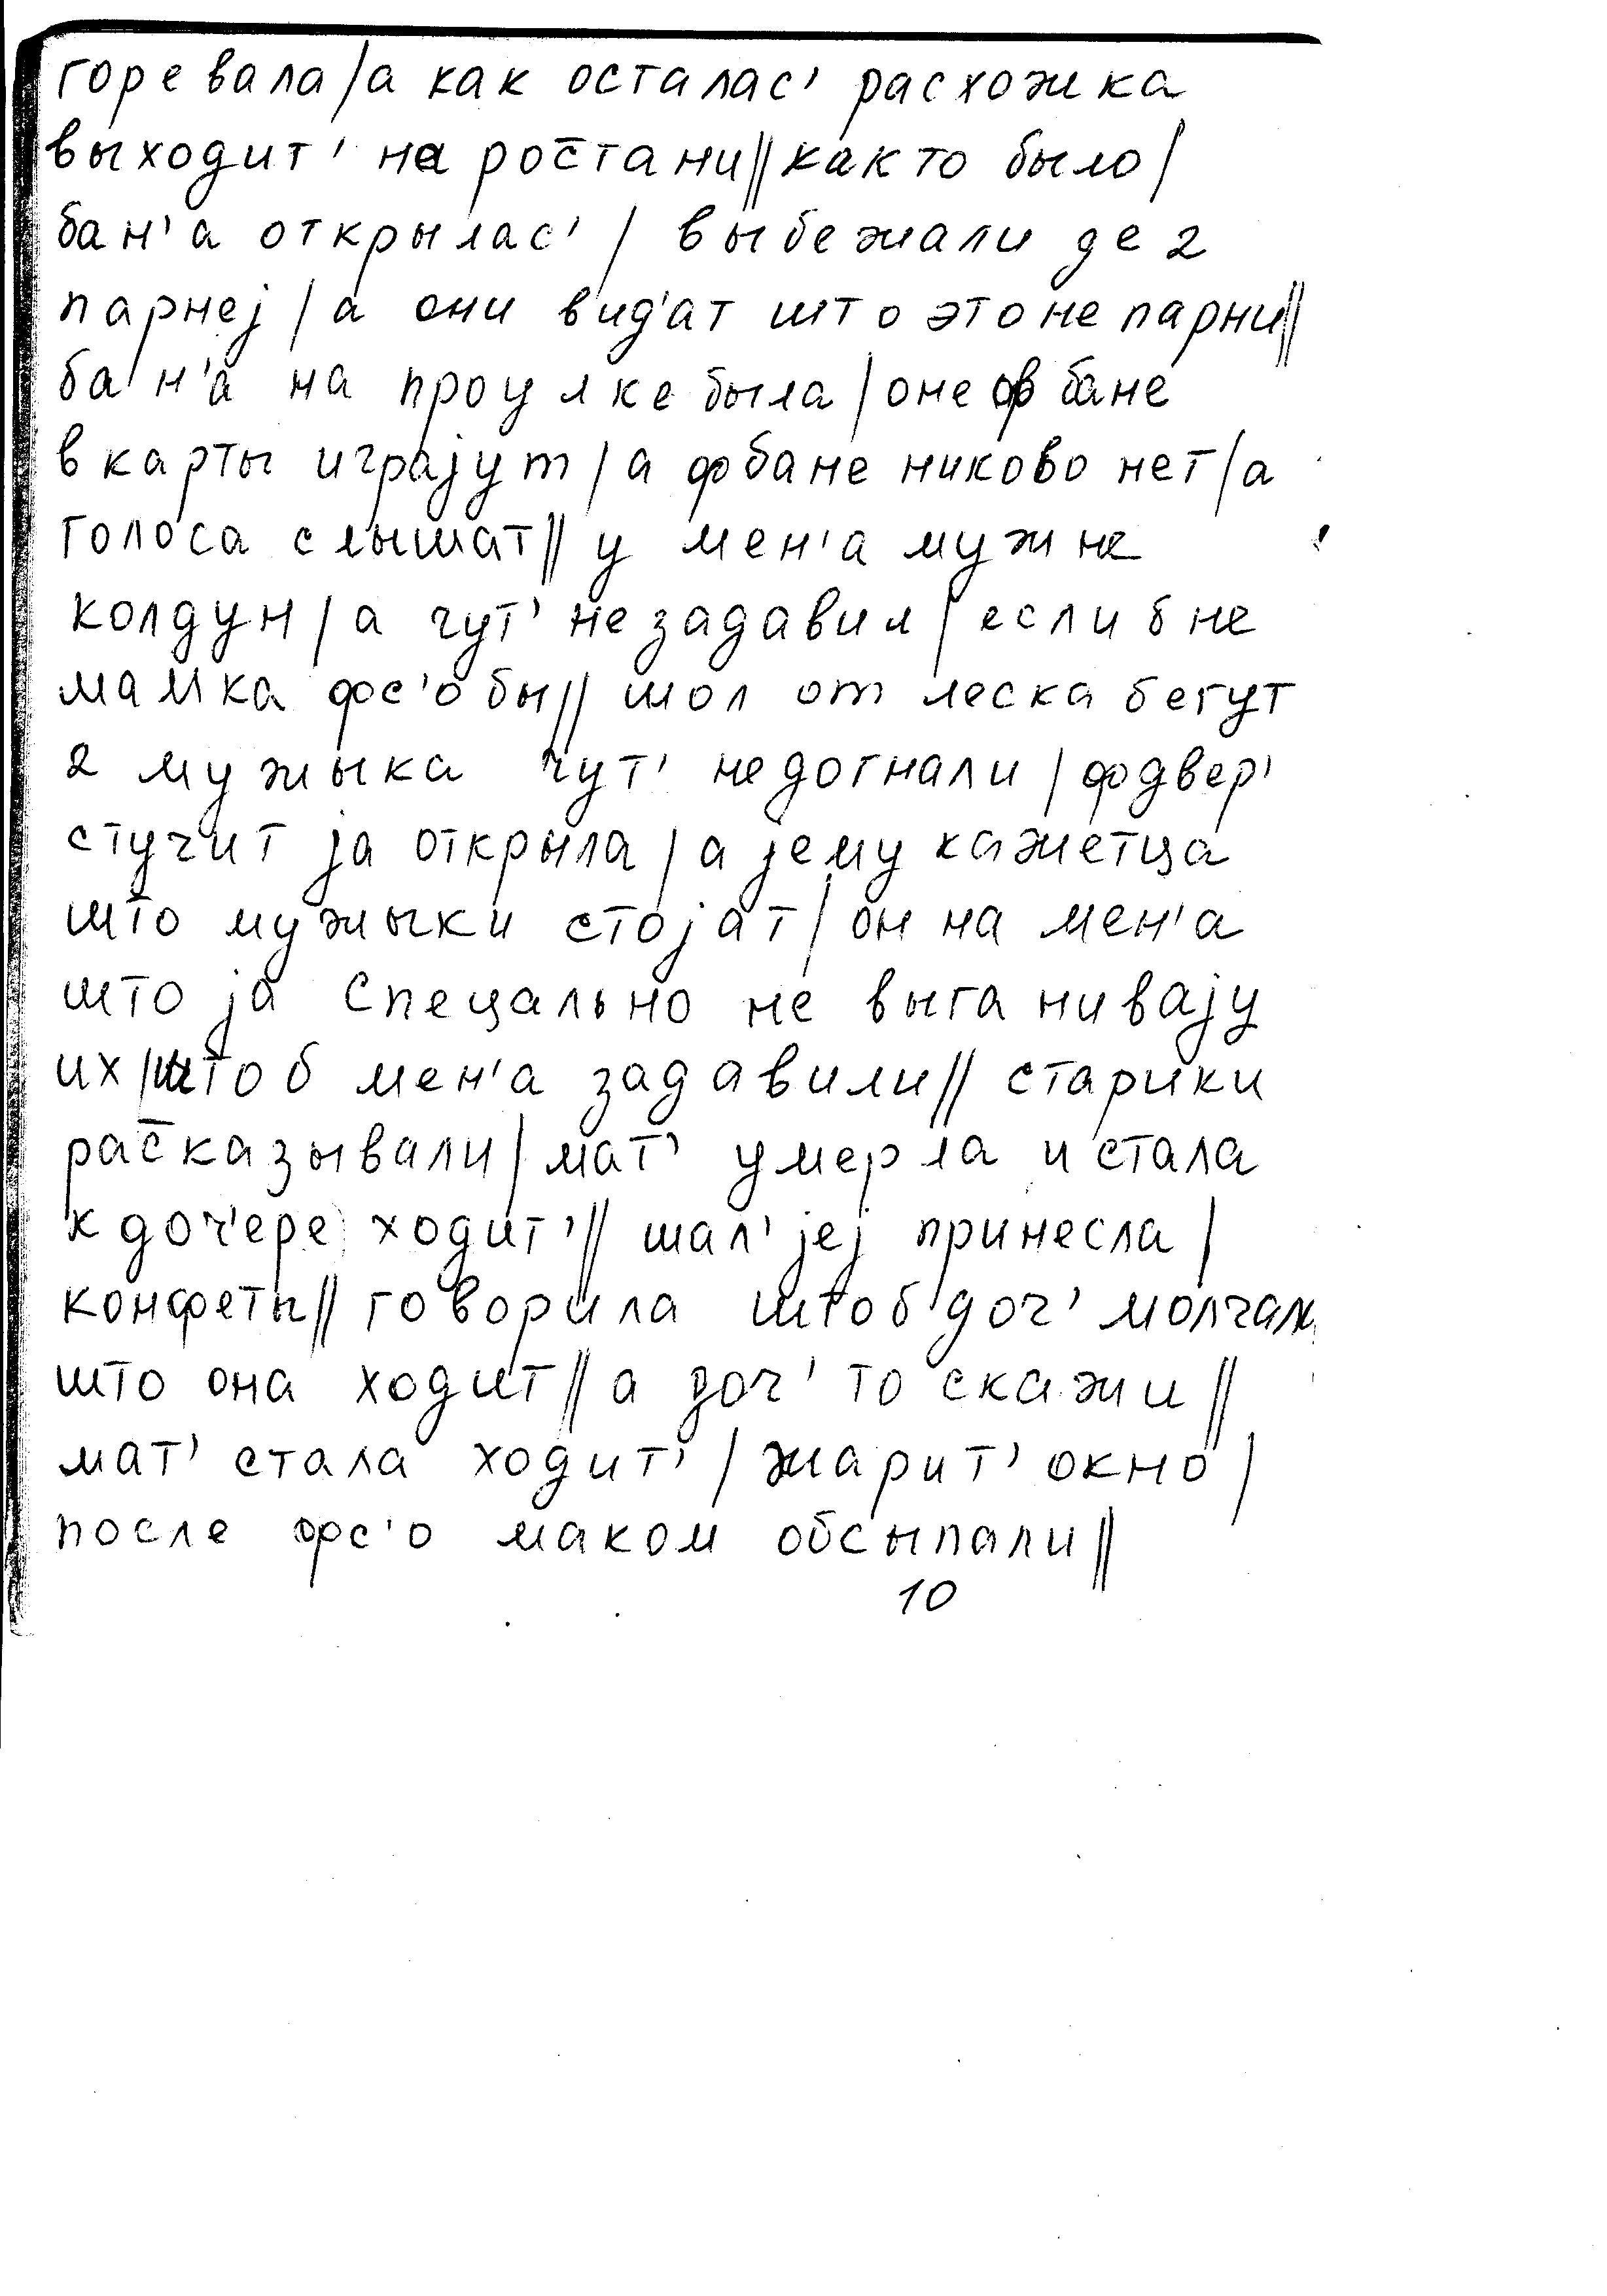 горевала/а как осталас' расхожка
выходит' на рос̄тани//как то было/
бан'а открылас'/ выбежали де 2
парнеj/а они в'ид'ат што это не парни//
бан'а на проулке была/оне ф бане
в карты играjут/а ф бане никово нет/а
голоса слышат// у мен'а муж не
колдун/а чут' не задавил/если б не
мамка фс'о бы// шол от леска бегут
2 мужыка чут' не догнали/ф двер'
стучит jа открыла/а jему кажетца
што мужыки стоjат/он на мен'а
што jа спецально не выганиваjу
их/штоб мен'а задавили// старики
рас̄казывали/мат' умерла и стала
к доч'ере ходит'// шал' jеj принесла/
конфеты// говорила штоб доч' молчала
што она ходит// а доч' то скажи//
мат' стала ходит'/жарит' окно/
после фс'о маком обсыпали//
10